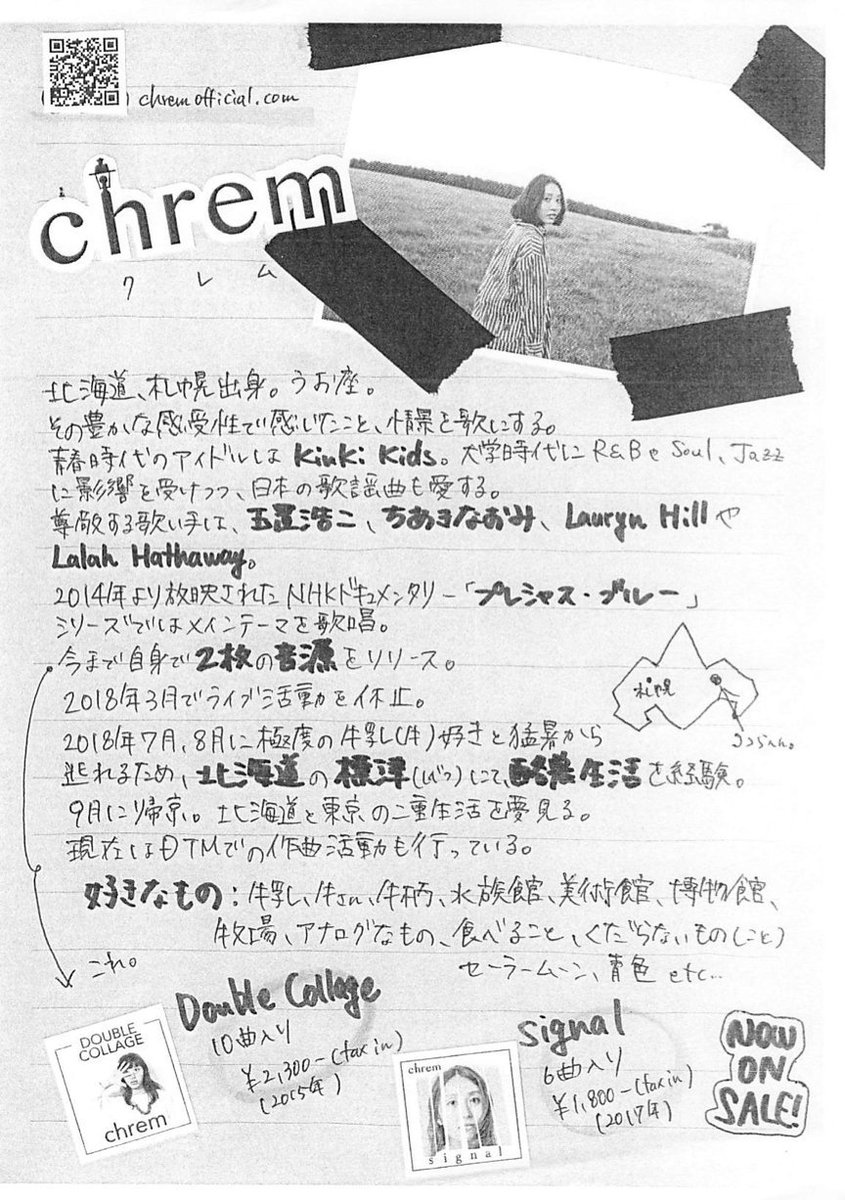 chremofficial.com
chrem
クレム
北海道、札幌出身。うお座。
その豊かな感受性で感じたこと、情景を歌にする。
青春時代のアイドルは Kinki Kids。大学時代に R&B や Soul、Jazz
に影響を受けつつ、日本の歌謡曲も愛する。
尊敬する歌い手は、玉置浩二、ちあきなおみ、Lauryn Hill や
Lalah Hathaway。
2014年より放映された NHKドキュメンタリー「プレシャス・ブルー」
シリーズではメインテーマを歌唱。
今まで自身で2枚の音源をリリース。
2018年3月でライブ活動を休止。
2018年7月、8月に極度の牛乳(牛)好きと猛暑から
ココらへん。
逃れるため、北海道の標津(しべつ)にて、酪農生活を経験。
9月に帰京。北海道と東京の二重生活を夢見る。
現在はDTMでの作曲活動も行っている。
好きなもの：牛乳、牛さん、牛柄、水族館、美術館、博物館、
牧場、アナログなもの、食べること、くだらないもの(こと)
セーラームーン、青色 etc…
これ。
Double Collage
10曲入り
¥2,300-(tax in)
(2015年)
DOUBLE
COLLAGE
chrem
signal
6曲入り
¥1,800-(tax in)
(2017年)
chrem
signal
NOW
ON
SALE!